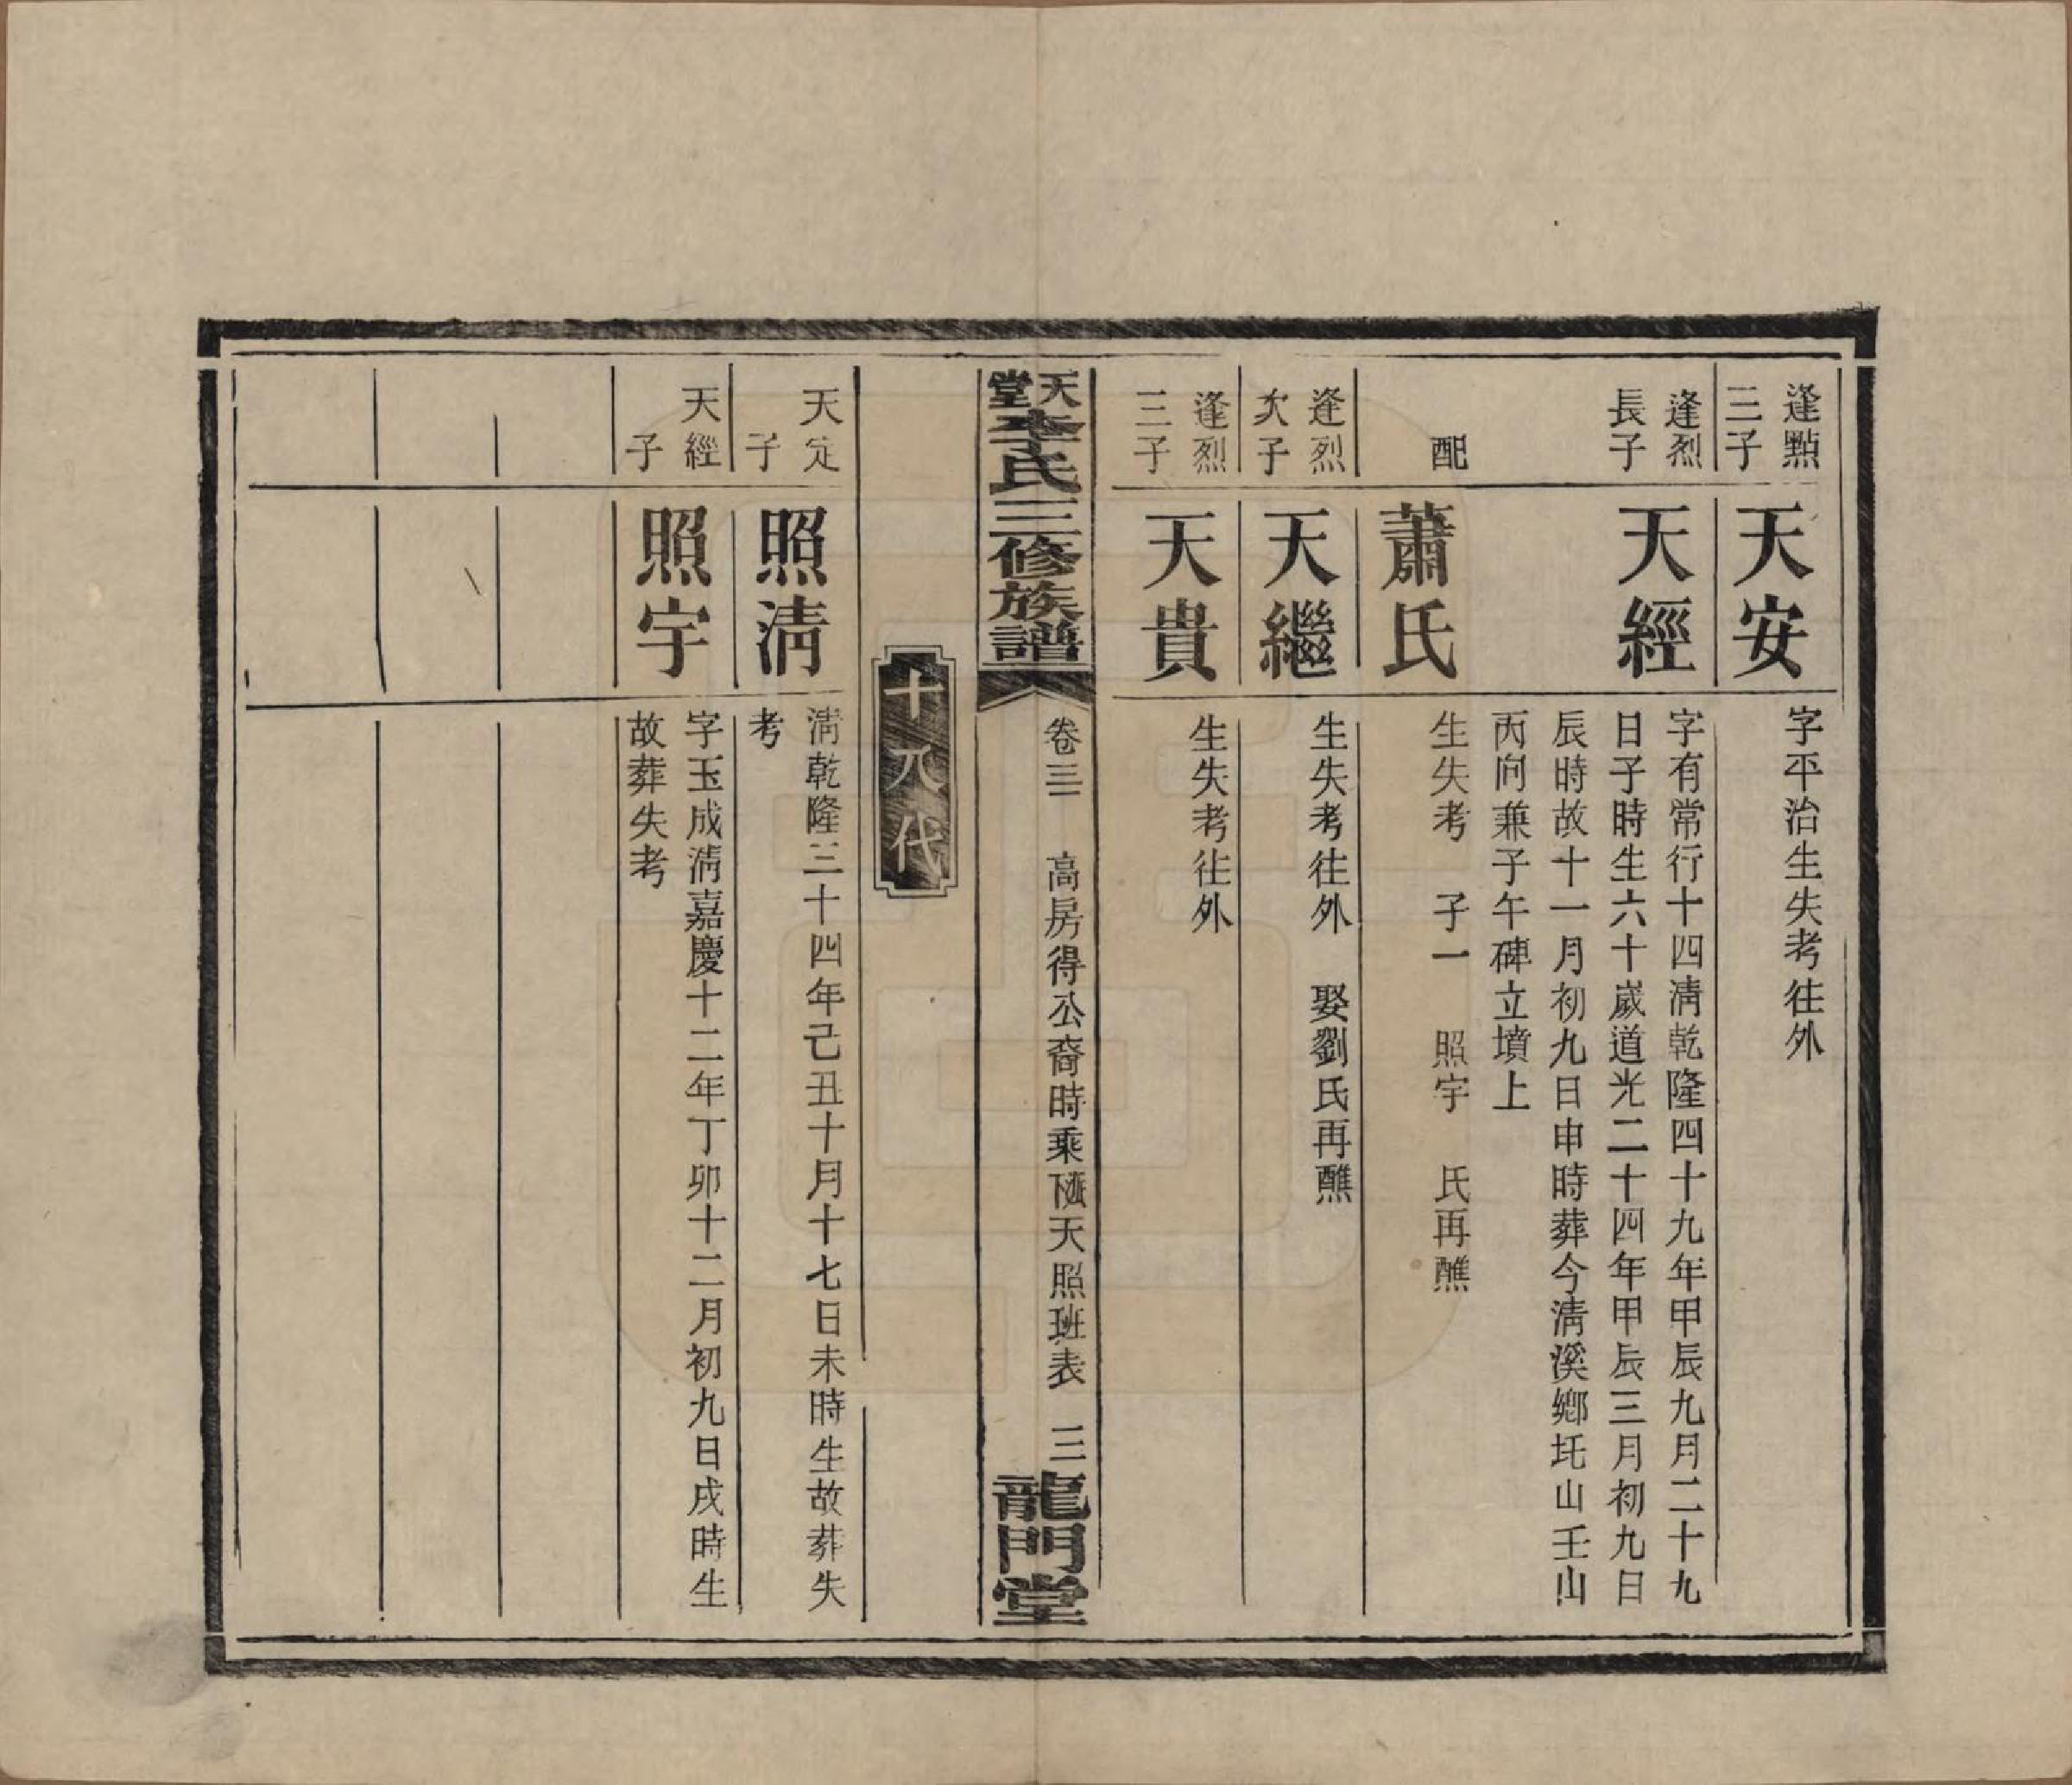 逢點
三子
天安
字平治生失考往外
逢烈
長子
天經
字有常行十四淸乾隆四十九年甲辰九月二十九
日子時生六十歲道光二十四年甲辰三月初九日
辰時故十一月初九日申時葬今淸溪鄉圫山壬山
丙向兼子午碑立墳上
配
蕭氏
生失考 子一 照宇 氏再醮
逢烈
次子
天繼
生失考往外 娶劉氏再醮
逢烈
三子
天貴
生失考往外
天堂李氏三修族譜
卷三 高房得公裔時乘 天照班表 三
龍門堂
十八代
天定
子
照淸
淸乾隆三十四年己丑十月十七日未時生故葬失
考
天經
子
照宇
字玉成淸嘉慶十二年丁卯十二月初九日戌時生
故葬失考